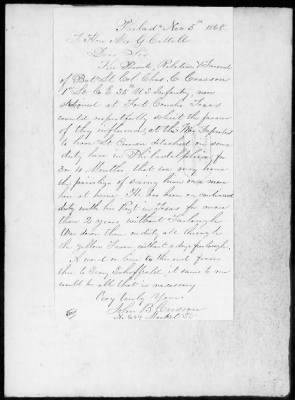 Philad^a Nov 5th 1868
To Hon Alex G Cattell
Dear Sir
The Parents, Relatives & Friends
of Bvt Lt Col Chas C Cresson
1st Lt Co E 35th U S Infantry, now
stationed at Fort Concho Texas
would respectfully solicit the favor
of they influence, at the War Department
to have Lt Cresson detached on some
duty here in Philadelphia, for
10 Months, that we may have
the privilege of seeing him once more
here at home, He has been on continued
duty with his Reg't in Texas for more
than 2 years without Furlough
Was down there on duty all through
the yellow Fever without a days furlough,
A word or line to this end from
thee to Genl Schoffield, it seems to me
would be all that is necessary
Very truly Yours
John B Cresson
No Market St